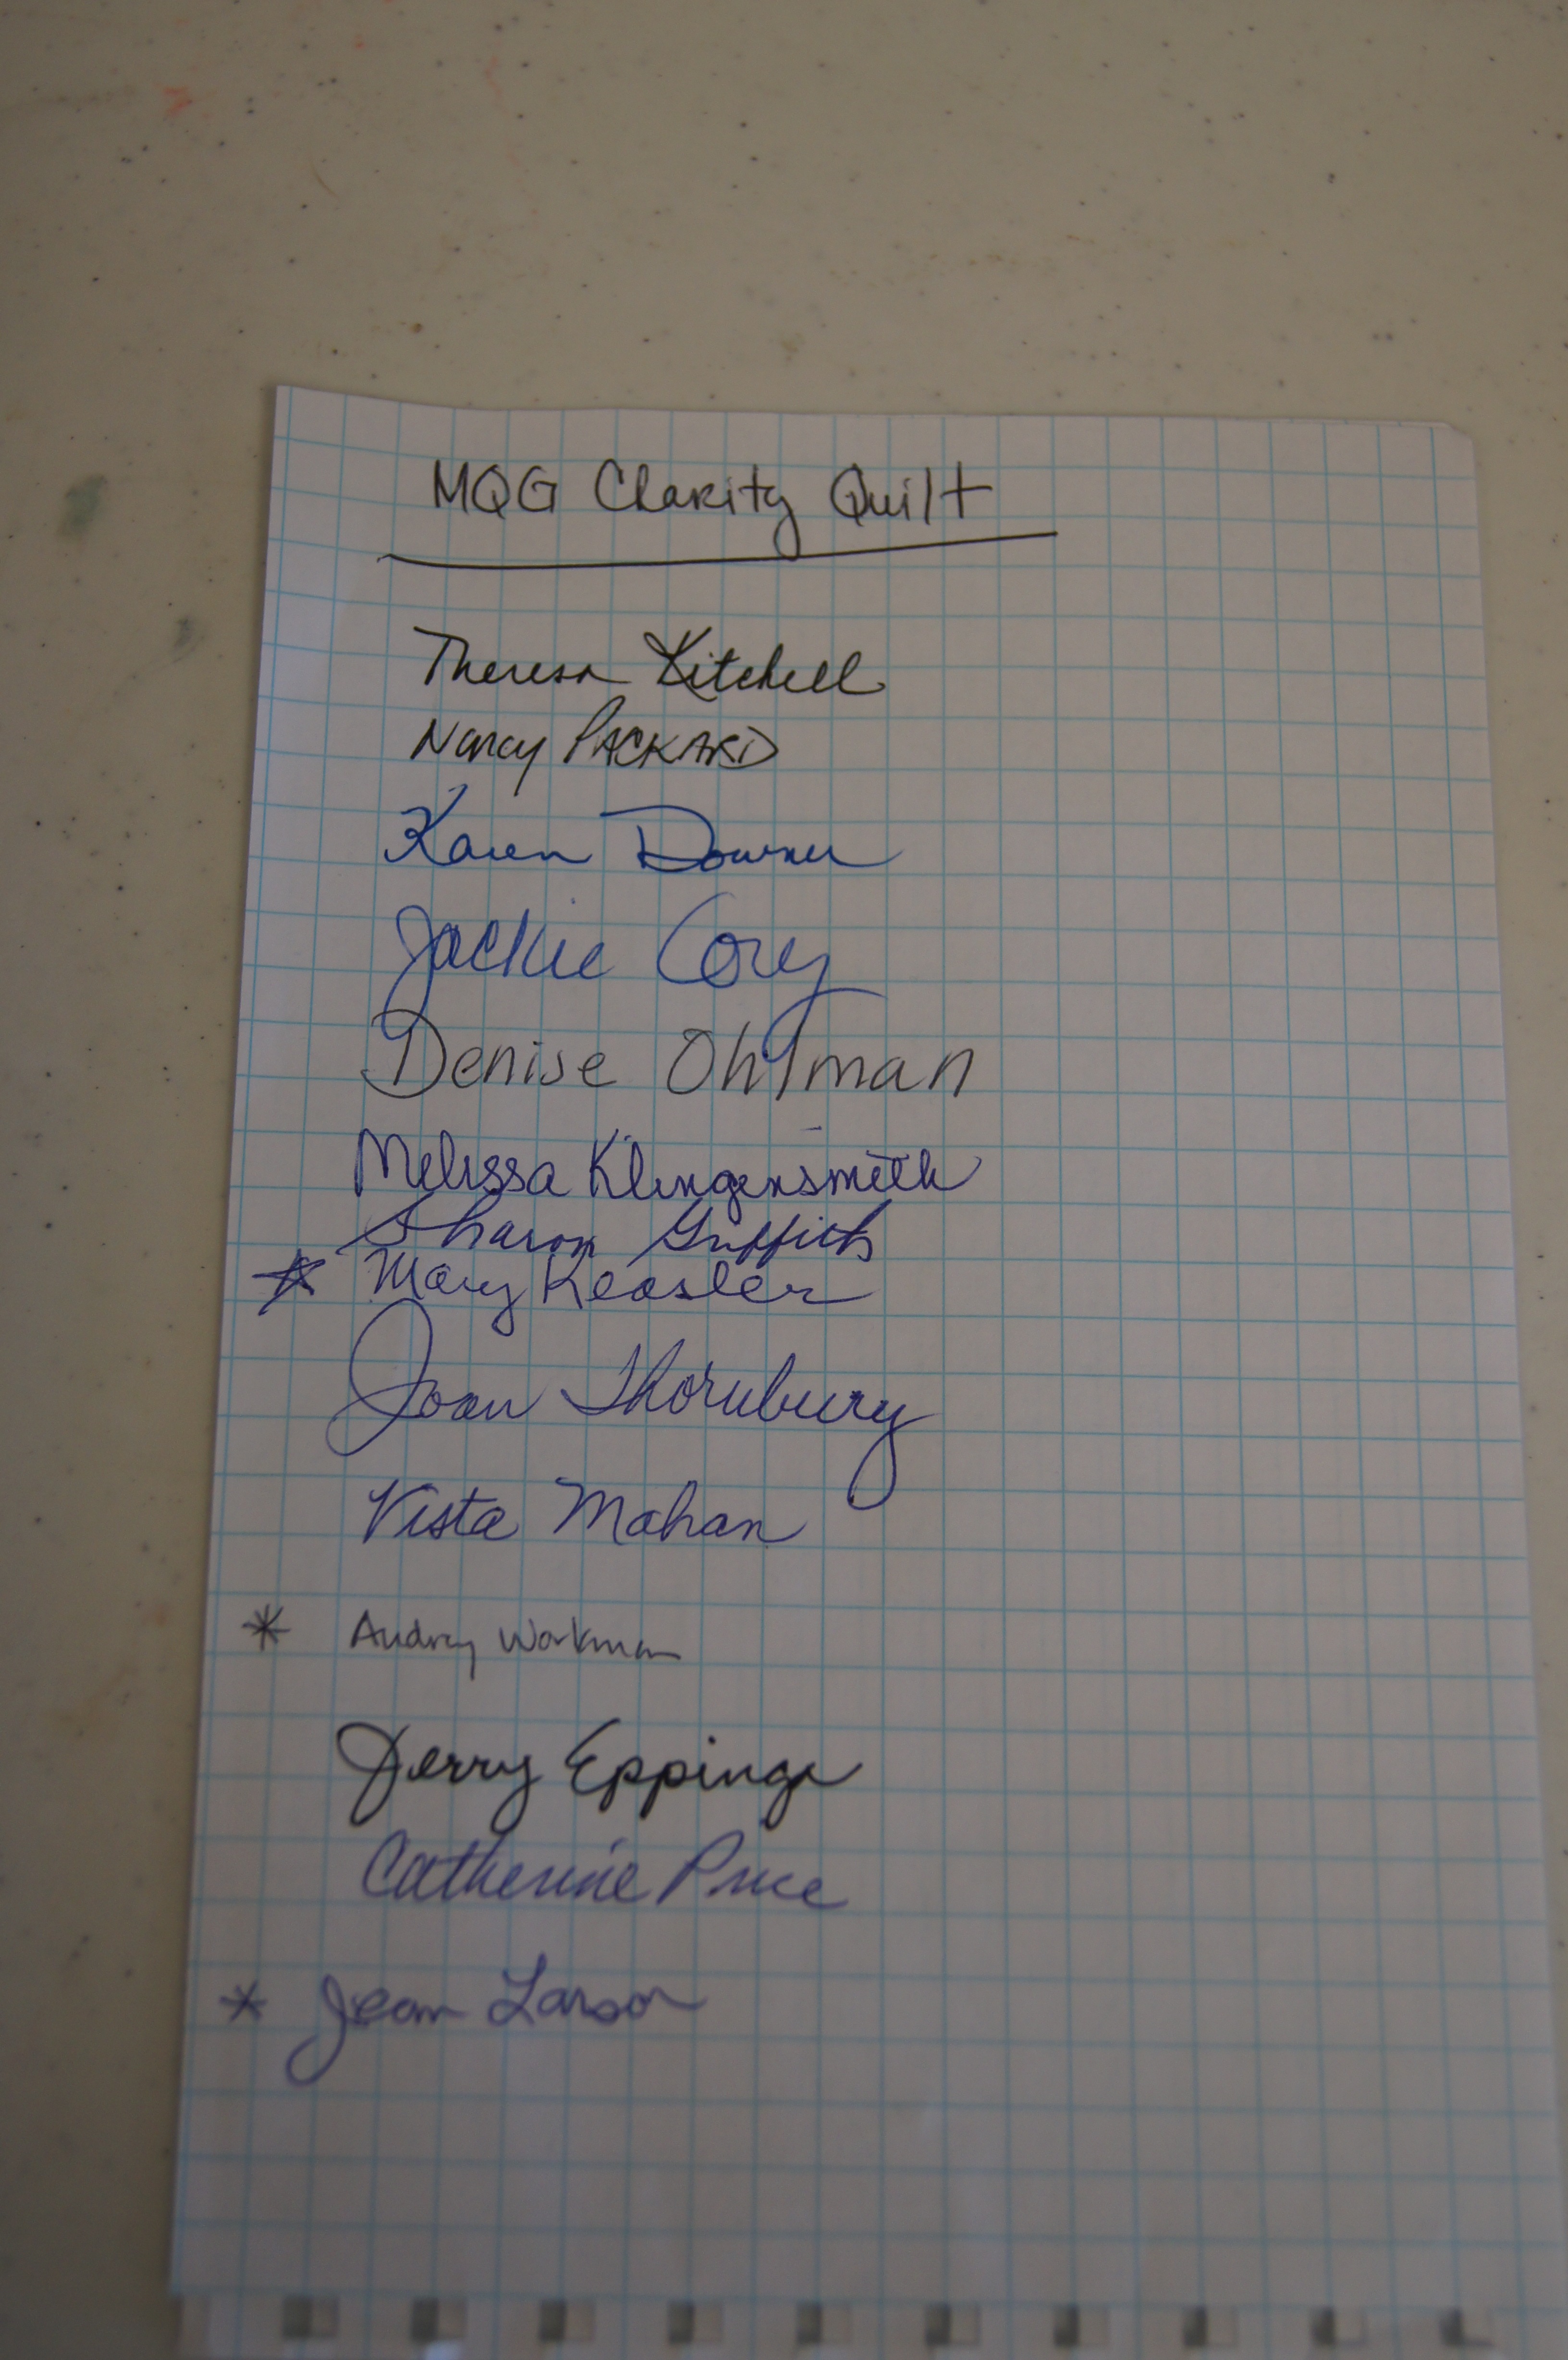 MQG Charity Quilt
Theresa Kitchell
Nancy PACKARD
Karen Downer
Jackie Cory
Denise Ohlman
Melissa Klingensmith
Sharon Griffith
* Mary Keasler
Joan Thornbury
Vista Mahan
* Audrey Workman
Jerry Epping
Catherine Price
* Jean Larson